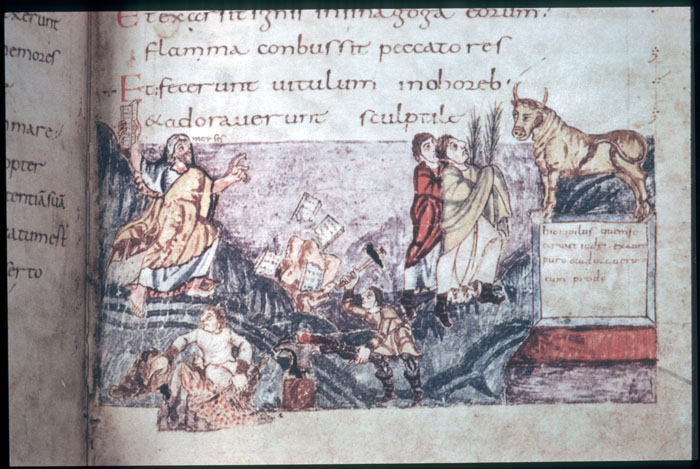 exerunt
memores
mmare
opter
tentiā suā
atum est
erto
Et exarsit ignis insinagoga eorum.
flamma conbussit peccatores
Et fecerunt uitulum inchoreb.
& adorauerunt sculptile
quem fe
cerunt iudei ex auro
puro & adorauerun